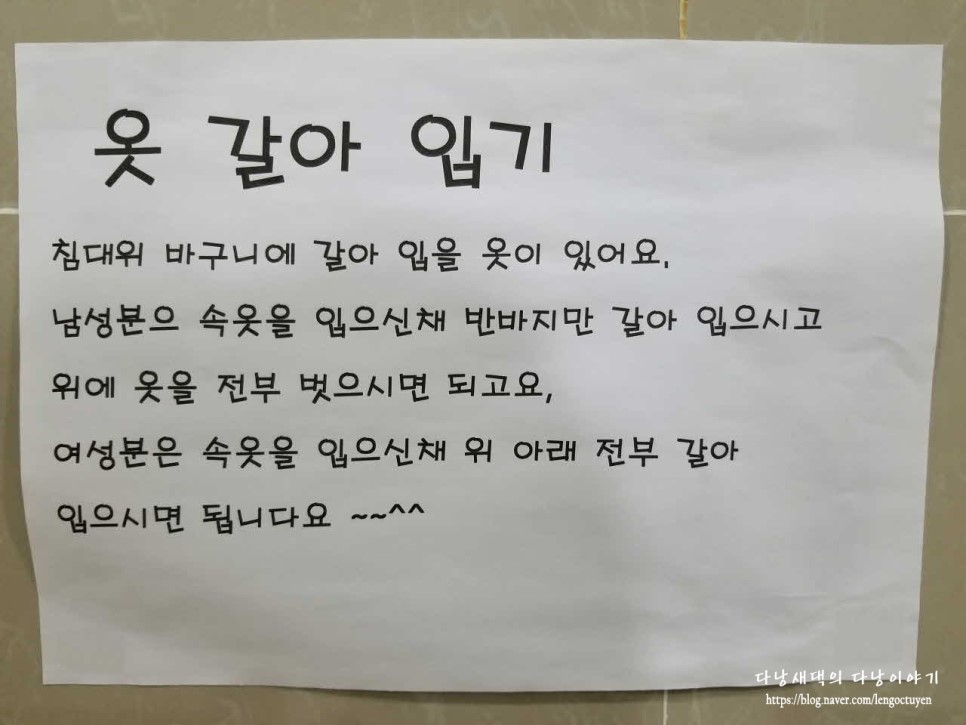 옷 갈아 입기
침대위 바구니에 갈아 입을 옷이 있어요.
남성분으 속옷을 입으신채 반바지만 갈아 입으시고
위에 옷을 전부 벗으시면 되고요,
여성분은 속옷을 입으신채 위 아래 전부 갈아
입으시면 됩니다요 ~~^^
다낭새댁의 다낭이야기
https://blog.naver.com/lengoctuyen